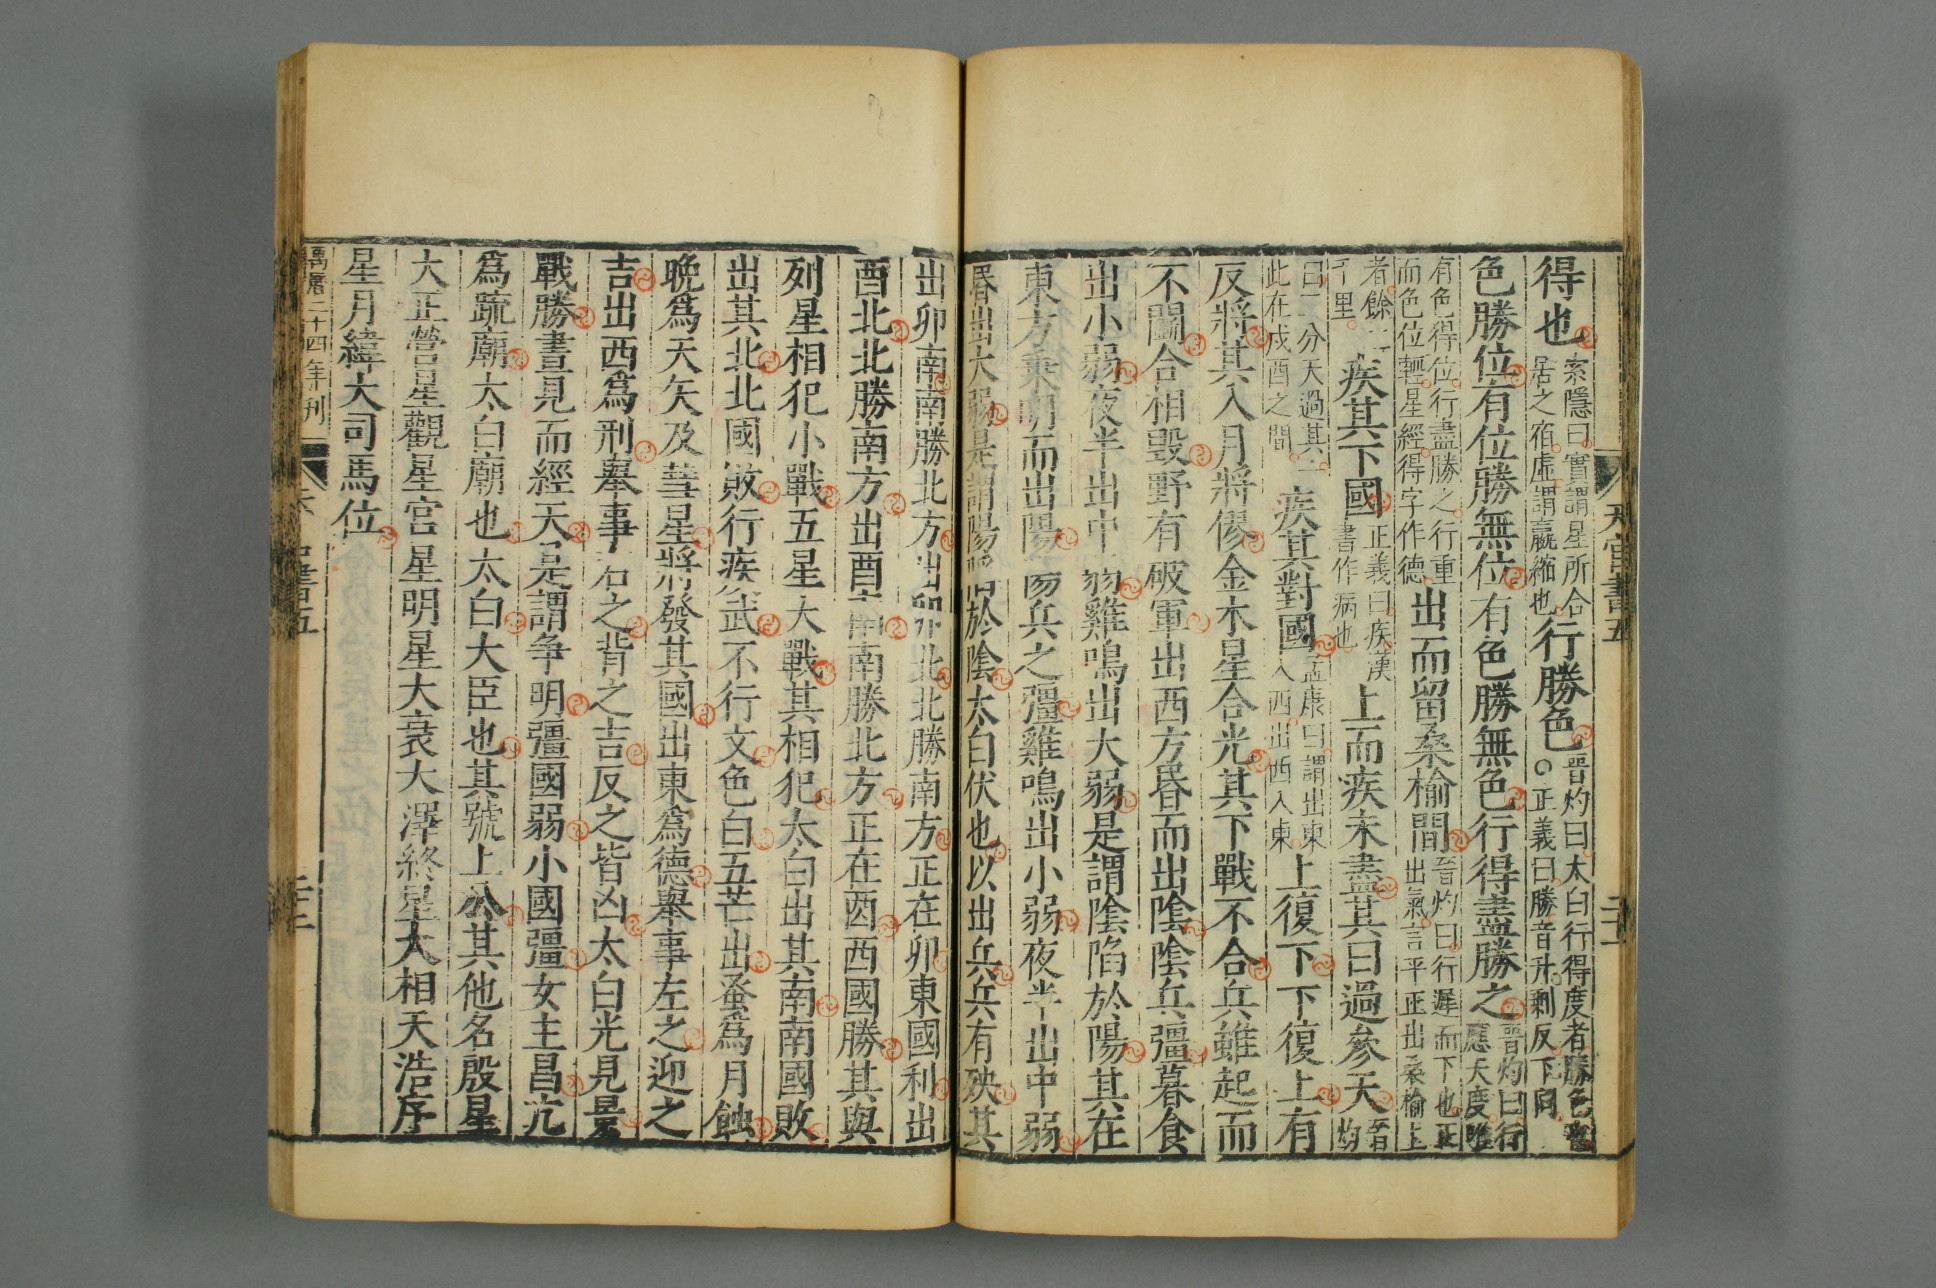 得也索隱曰實謂星所合居之宿虛謂贏縮也行勝色晋灼曰太白行得度者勝色也○正義曰勝音升剩反下同
色勝位有位勝無位有色勝無色行得盡勝之晋灼曰行應天度雖
有色得位行盡勝之行重而色位輕星經得字作德出而留桑榆間晋灼曰行遲而下也正出氣言平正出桑榆上
者餘二千里疾其下國正義曰疾漢書作病也上而疾未盡其日過參天晋灼
曰三分天過其一此在戍酉之間疾其對國孟康曰謂出東入西出西入東上復下下復上有
反將其入月將僇金木星合光其下戰不合兵雖起而
不鬭合相毀野有破軍出西方昏而出陰陰兵彊暮食
出小弱夜半出中弱雞鳴出大弱是謂陰陷於陽其在
東方乗明而出陽陽兵之彊雞鳴出小弱夜半出中弱
昏出大弱是謂陽陷於陰太白伏也以出兵兵有殃其
出卯南南勝北方出卯北北勝南方正在卯東國利出
酉北北勝南方出酉南南勝北方正在酉西國勝其與
列星相犯小戰五星大戰其相犯太白出其南南國敗
出其北北國敗行疾武不行文色白五芒出蚤爲月蝕
晚爲天矢及彗星將發其國出東爲德舉事左之迎之
吉出西爲刑舉事右之背之吉反之皆凶太白光見景
戰勝晝見而經天是謂爭明彊國弱小國彊女主昌亢
爲疏廟太白廟也太白大臣也其號上公其他名殷星
大正營星觀星宮星明星大衰大澤終星大相天浩序
星月緯大司馬位
萬曆二十四年刊
天官書五